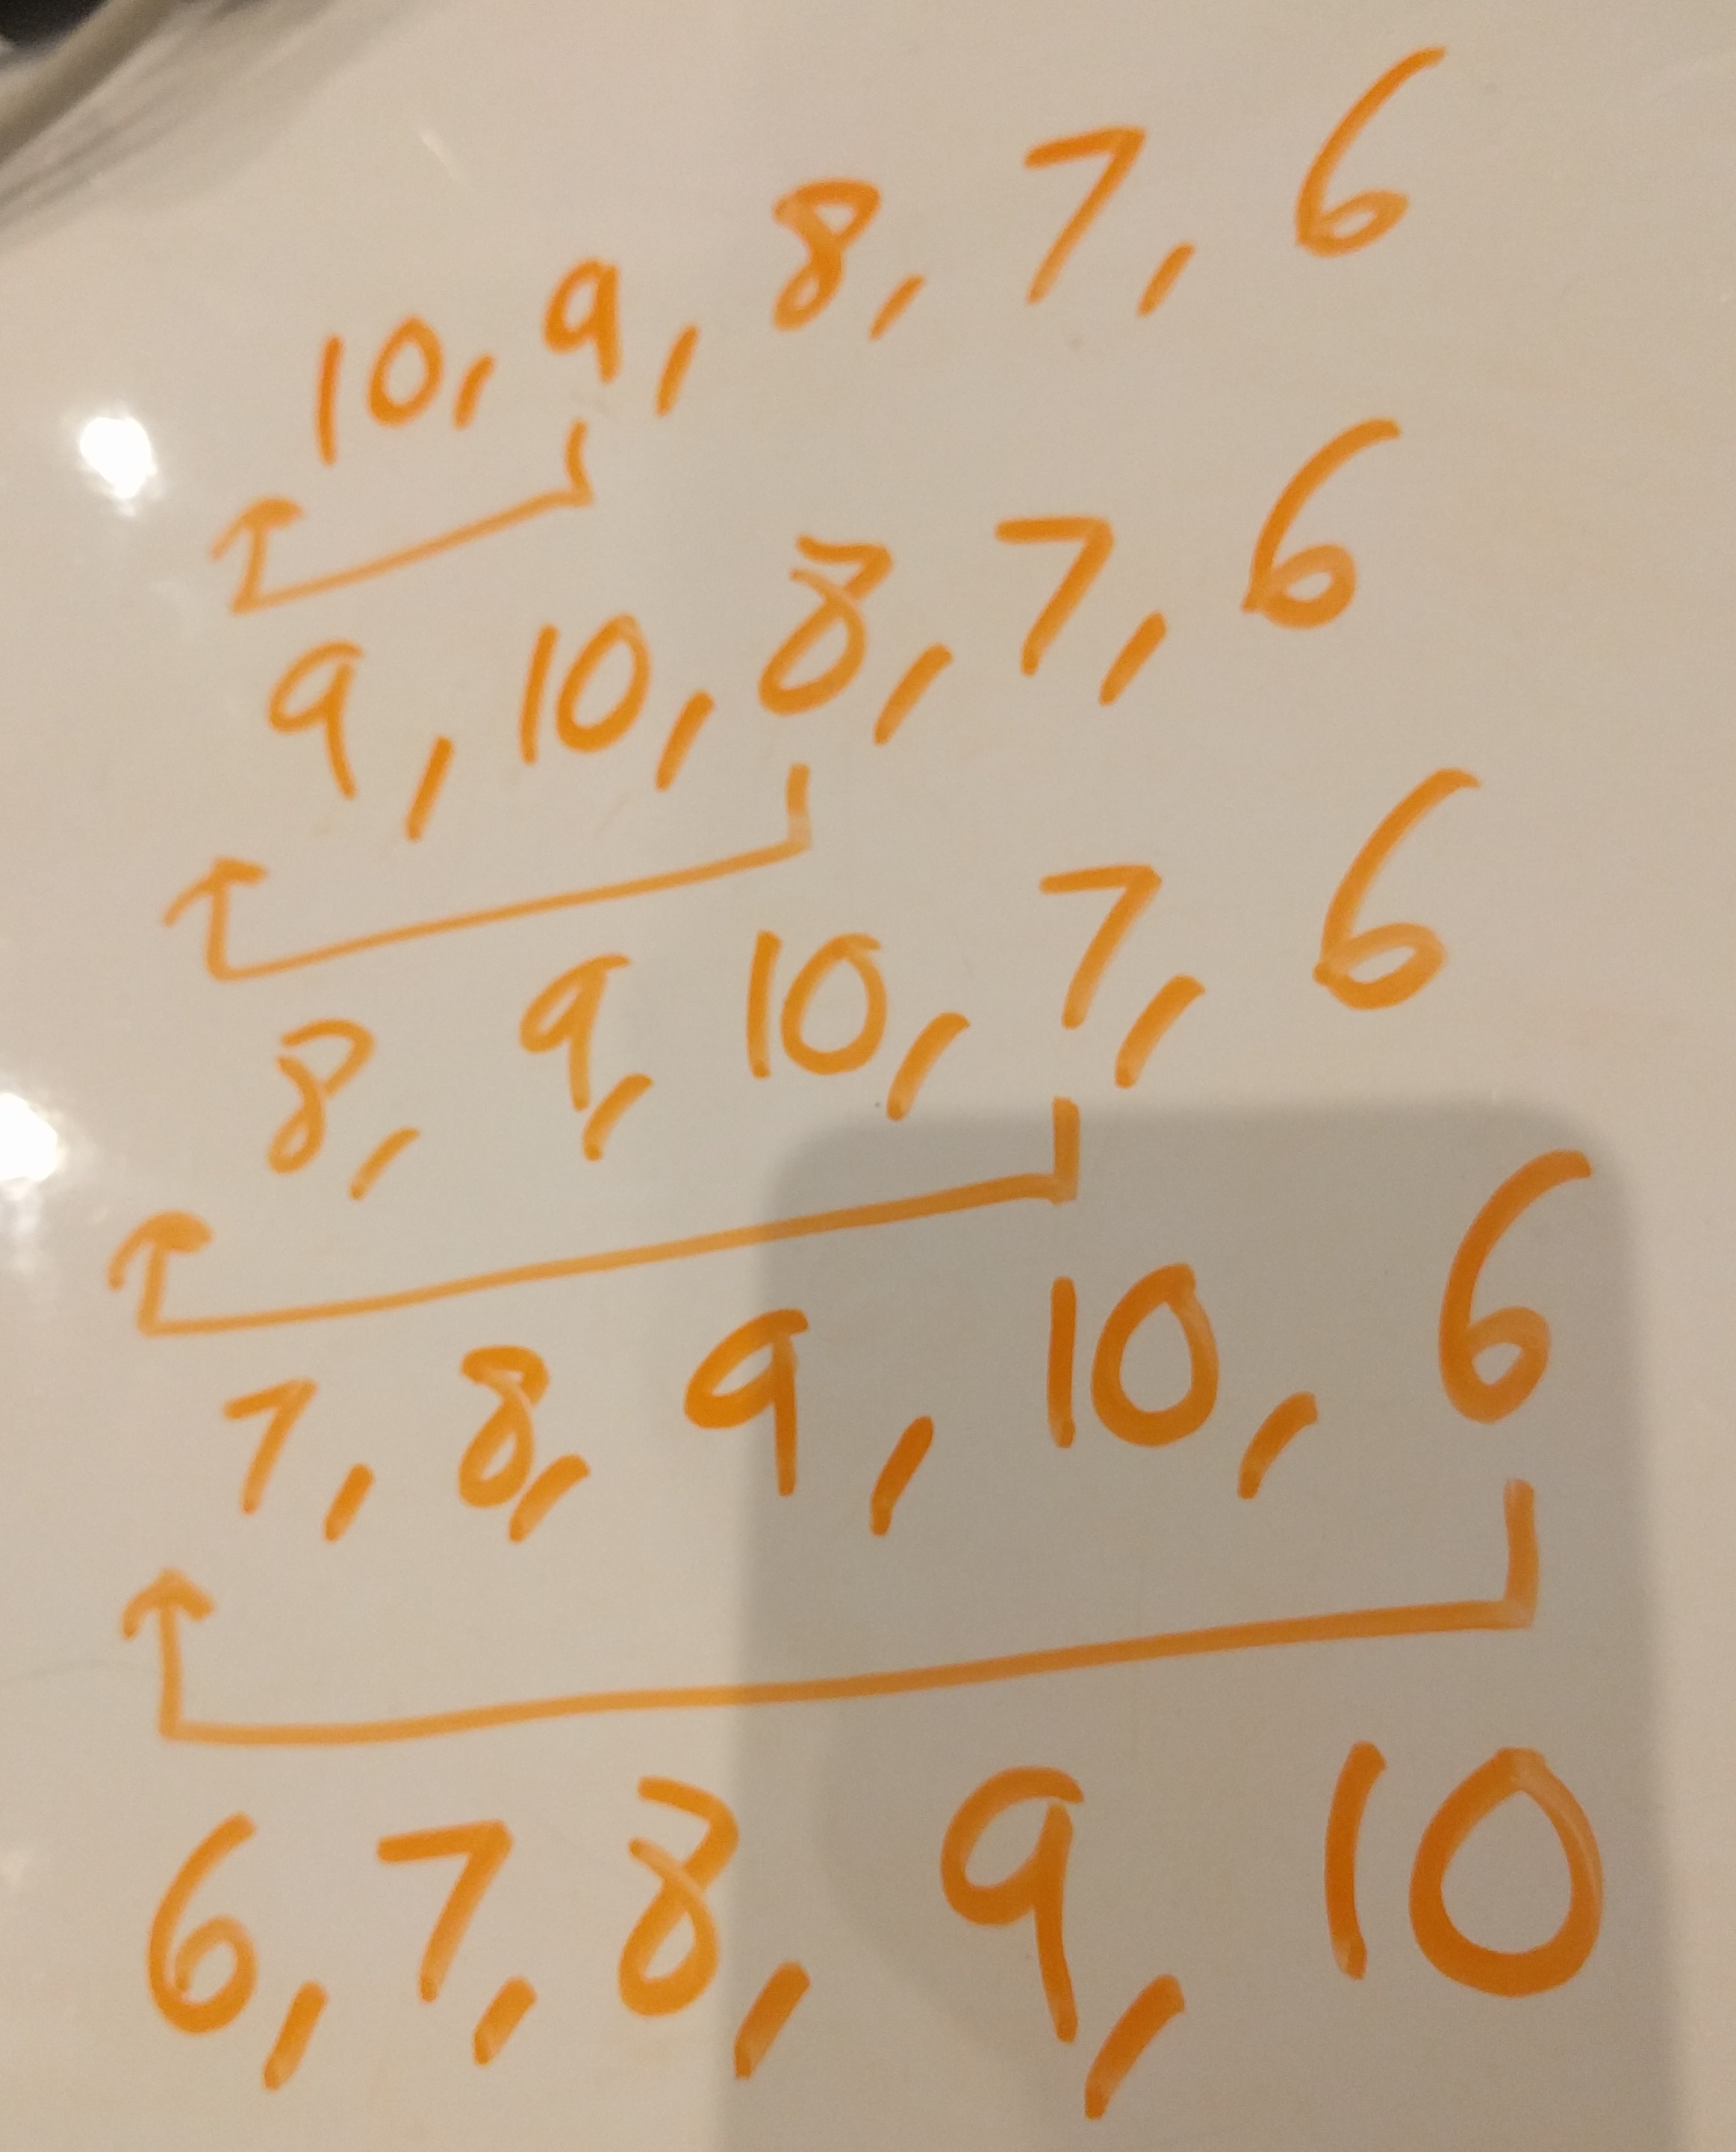 10, 9, 8, 7, 6
9, 10, 8, 7, 6
8, 9, 10, 7, 6
7, 8, 9, 10, 6
6, 7, 8, 9, 10